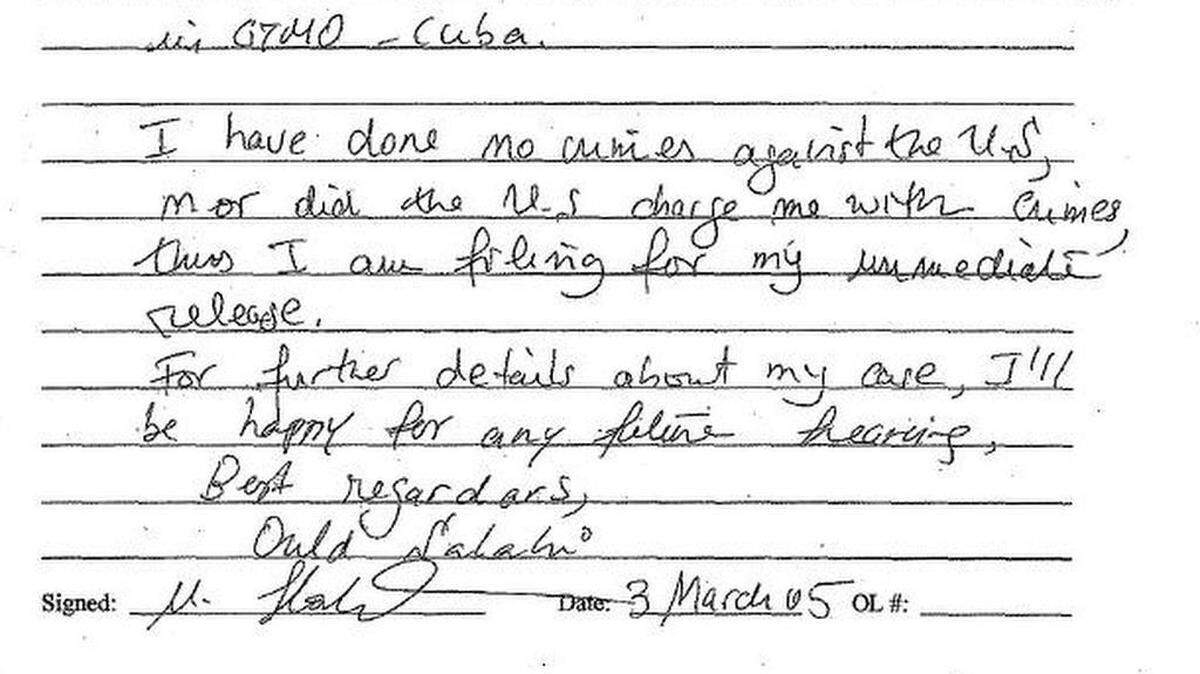 in GTMO - Cuba.
I have done no crimes against the U.S,
nor did the U.S charge me with crimes,
thus I am filing for my immediate
release.
For further details about my case, I'll
be happy for any future hearing,
Best regards,
Ould Salahi
Signed: M. Date: 3 March 05 OL #: